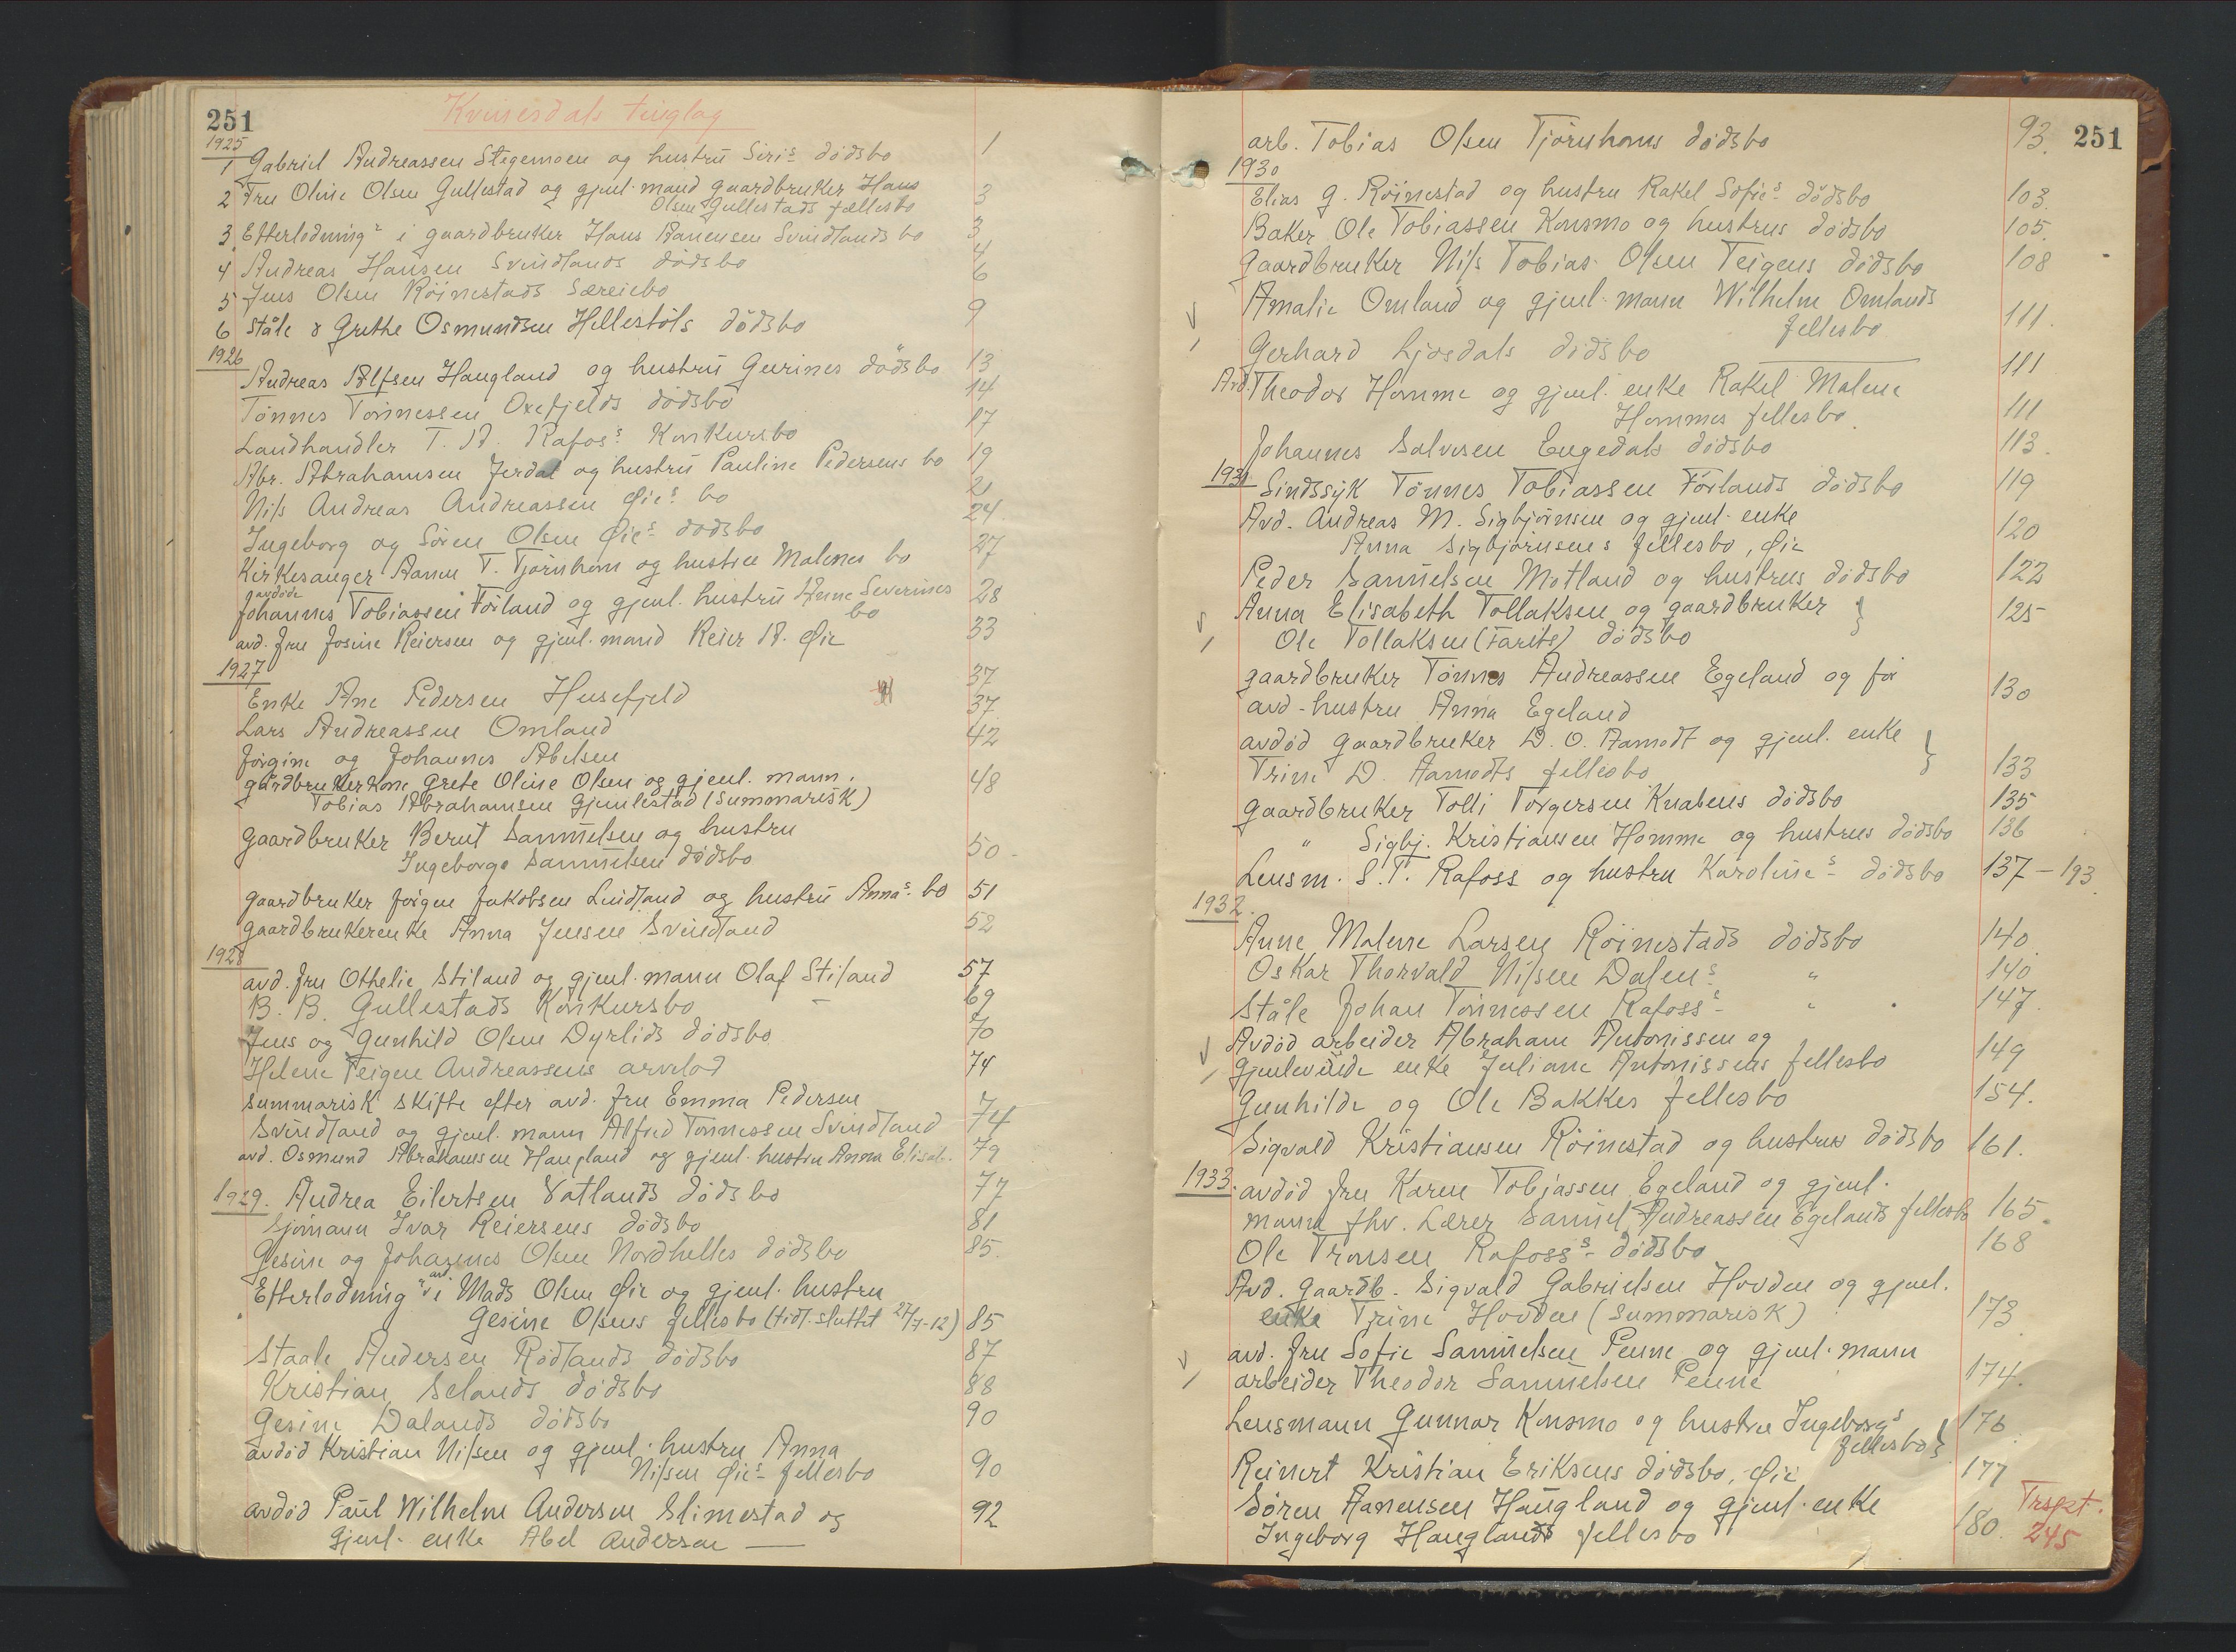 251
Kvinesdals tinglag
1925
1 Gabriel Andreassen Stegemoen og hustru Siri's dødsbo 1
2 Fru Oline Olsen Gullestad og gjenl. mand gaardbruker Hans
Olsen Gullestads fællesbo 3
3 Efterlodning i gaardbruker Hans Aanensen Svindlands bo 3
4 Andreas Hansen Svindlands dødsbo 4
5 Jens Olsen Röinestads Særeiebo 6
6 Ståle & Grethe Osmundsen Hellestöls dödsbo 9
1926
Andreas Alfsen Haugland og hustru Gurines dødsbo 13
Tønnes Tønnessen Oxefjelds dødsbo 14
Landhandler T. A. Rafos's Konkursbo 17
Abr. Abrahamsen Jerdal og hustru Pauline Pedersens bo 19
Nils Andreas Andreassen Øie's bo 21
Ingeborg og Sören Olsen Øie's dødsbo 24.
Kirkesanger Aanen T. Tjørnhom og hustru Malenes bo 27
avdøde
Johannes Tobiassen Førland og gjenl. hustru Anne Severines 28
bo
avd. fru Josine Reiersen og gjenl. mand Reier A. Øie 33
1927
Enke Ane Pedersen Husefjeld 37
Lars Andreassen Omland 37
Jørgine og Johannes Abelsen 42
gårdbrukerkone Grete Oline Olsen og gjenl. mann.
Tobias Abrahamsen Gjemlestad (Summarisk) 48
gaardbruker Bernt Samuelsen og hustru
Ingeborgs Samuelsen dødsbo 50
gaardbruker Jørgen Jakobsen Lindland og hustru Anna's bo 51
gaardbrukerenke Anna Jensen Svindland 52
1928
avd. fru Othelie Stiland og gjenl. mann Olaf Stiland 57
B. B. Gullestads Konkursbo 69
Jens og Gunhild Olsen Dyrlids dødsbo 70
Helene Teigen Andreassens arvelod 74
Summarisk skifte efter avd. fru Emma Pedersen
Svindland og gjenl. mann Alfred Tønnessen Svindland 74
avd. Osmund Abrahamsen Haugland og gjenl. hustru Anna Elisab. 79
1929. Andrea Eilertsen Vatlands dødsbo 77
Sjömann Ivar Reiersens dødsbo 81
Gesine og Johannes Olsen Nordhelles dødsbo 85.
Efterlodning i avd. Mads Olsen Øie og gjenl. hustru
Gesine Olsens fellesbo (tidl. sluttet 27/7-12) 85
Staale Andersen Rødlands dødsbo 87
Kristian Selands dødsbo 88
Gesine Dalands dødsbo 90
avdød Kristian Nilsen og gjenl. hustru Anna
Nilsen Øie's fellesbo 90
avdød Paul Wilhelm Andersen Slimestad og 92
gjenl. enke Abel Andersen
251
arb. Tobias Olsen Tjørnhoms dødsbo 93.
1930
Elias G. Röinestad og hustru Rakel Sofie's dødsbo 103.
Baker Ole Tobiassen Konsmo og hustrus dødsbo 105.
gaardbruker Nils Tobias Olsen Teigens dødsbo 108
Amalie Omland og gjenl. mann Wilhelm Omlands
fellesbo 111.
Gerhard Ljosdals dødsbo 111
Avd. Theodor Homme og gjenl. enke Rakel Malene
Hommes fellesbo. 111
Johannes Salvesen Engedals dødsbo 113.
1931 Sindssyk Tönnes Tobiassen Förlands dødsbo 119
Avd. Andreas M. Sigbjörnsen og gjenl. enke
Anna Sigbjörnsens fellesbo, Øie 120
Peder Samuelsen Motland og hustrus dødsbo 122
Anna Elisabeth Tollaksen og gaardbruker } 125
Ole Tollaksen (Farite) dødsbo
gaardbruker Tønnes Andreassen Egeland og før
avd. hustru Anna Egeland 130
avdød gaardbruker D. O. Aamodt og gjenl. enke }
Trine D. Aamodts fellesbo 133
gaardbruker Tolli Torgersen Knabens dødsbo 135
" Sigbj. Kristiansen Homme og hustrus dødsbo 136
Lensm. S. T. Rafoss og hustru Karoline's dødsbo 137 - 193.
1932.
Anne Malene Larsen Röinestads dødsbo 140
Oskar Thorvald Nilsen Dalen's " 140
Ståle Johan Tønnessen Rafoss's " 147.
Avdød arbeider Abraham Antonissen og
gjenlevende enke Juliane Antonissens fellesbo 149
Gunhilde og Ole Bakkes fellesbo 154.
Sigvald Kristiansen Röinestad og hustrus dødsbo 161.
1933. avdød fru Karen Tobiassen Egeland og gjenl.
mann fhv. Lærer Samuel Andreassen Egelands fellesbo 165.
Ole Tronsen Rafoss's dødsbo 168
Avd. gaardb. Sigvald Gabrielsen Hovden og gjenl.
enke Trine Hovden (Summarisk) 173
avd. fru Sofie Samuelsen Penne og gjenl. mann
arbeider Theodor Samuelsen Penne 174.
Lensmann Gunnar Konsmo og hustru Ingeborg's
fellesbo } 176
Reinert Kristian Eriksens dødsbo, Øie 177
Søren Aanensen Haugland og gjenl. enke
Ingeborg Hauglands fellesbo 180.
Trspt.
245